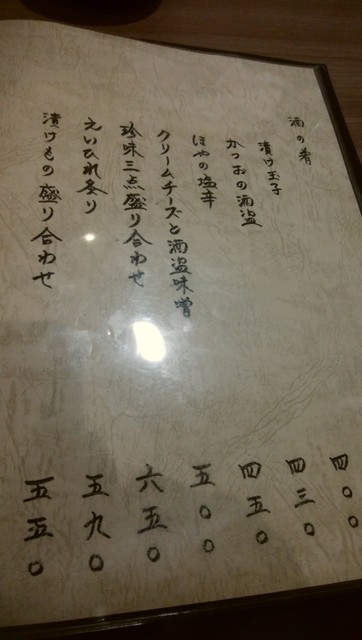 酒の肴
漬け玉子 四〇〇
かつおの酒盗 四三〇
ほやの塩辛 四五〇
クリームチーズと酒盗味噌 五〇〇
珍味三点盛り合わせ 六五〇
えいひれ炙り 五九〇
漬けもの盛り合わせ 五五〇